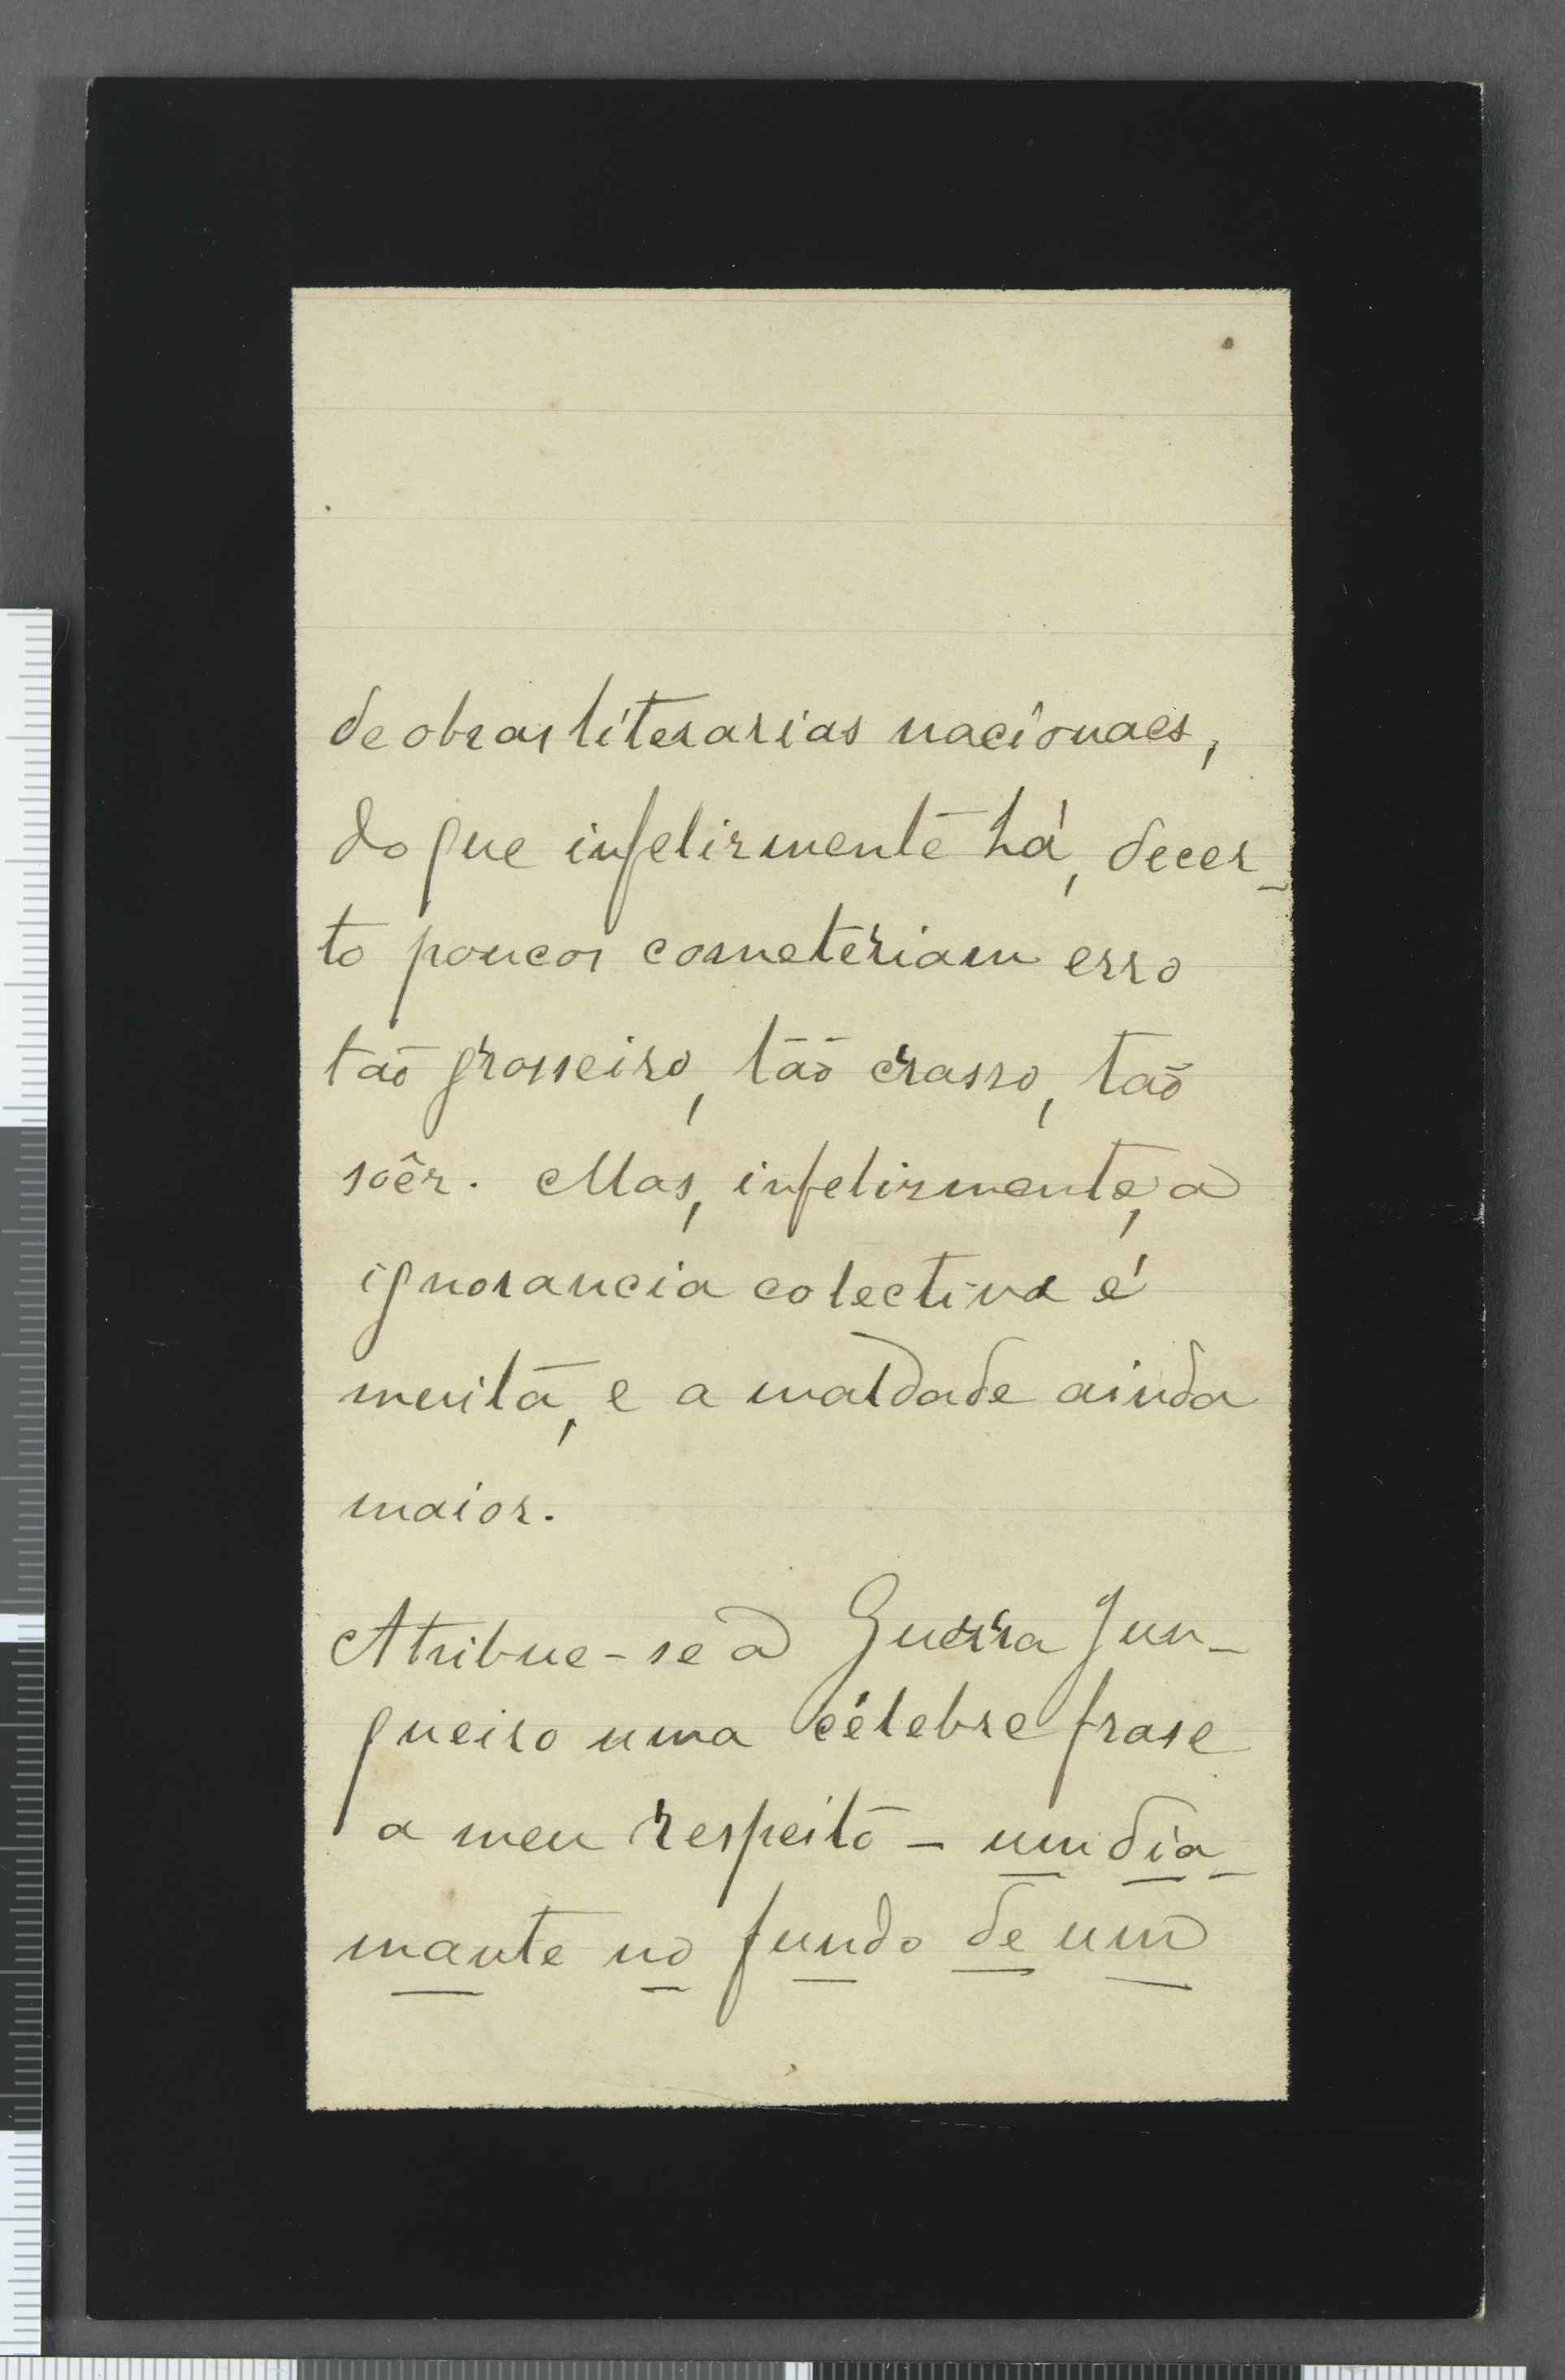 de obras literarias nacionaes,
do que infelizmente há, decer-
to poucos cometeriam erro
tão grosseiro, tão crasso, tão
soêz. Mas, infelizmente, a
ignorancia colectiva é
muita, e a maldade ainda
maior.
Atribue-se a Guerra Jun-
queiro uma célebre frase
a meu respeito - um dia-
mante no fundo de um